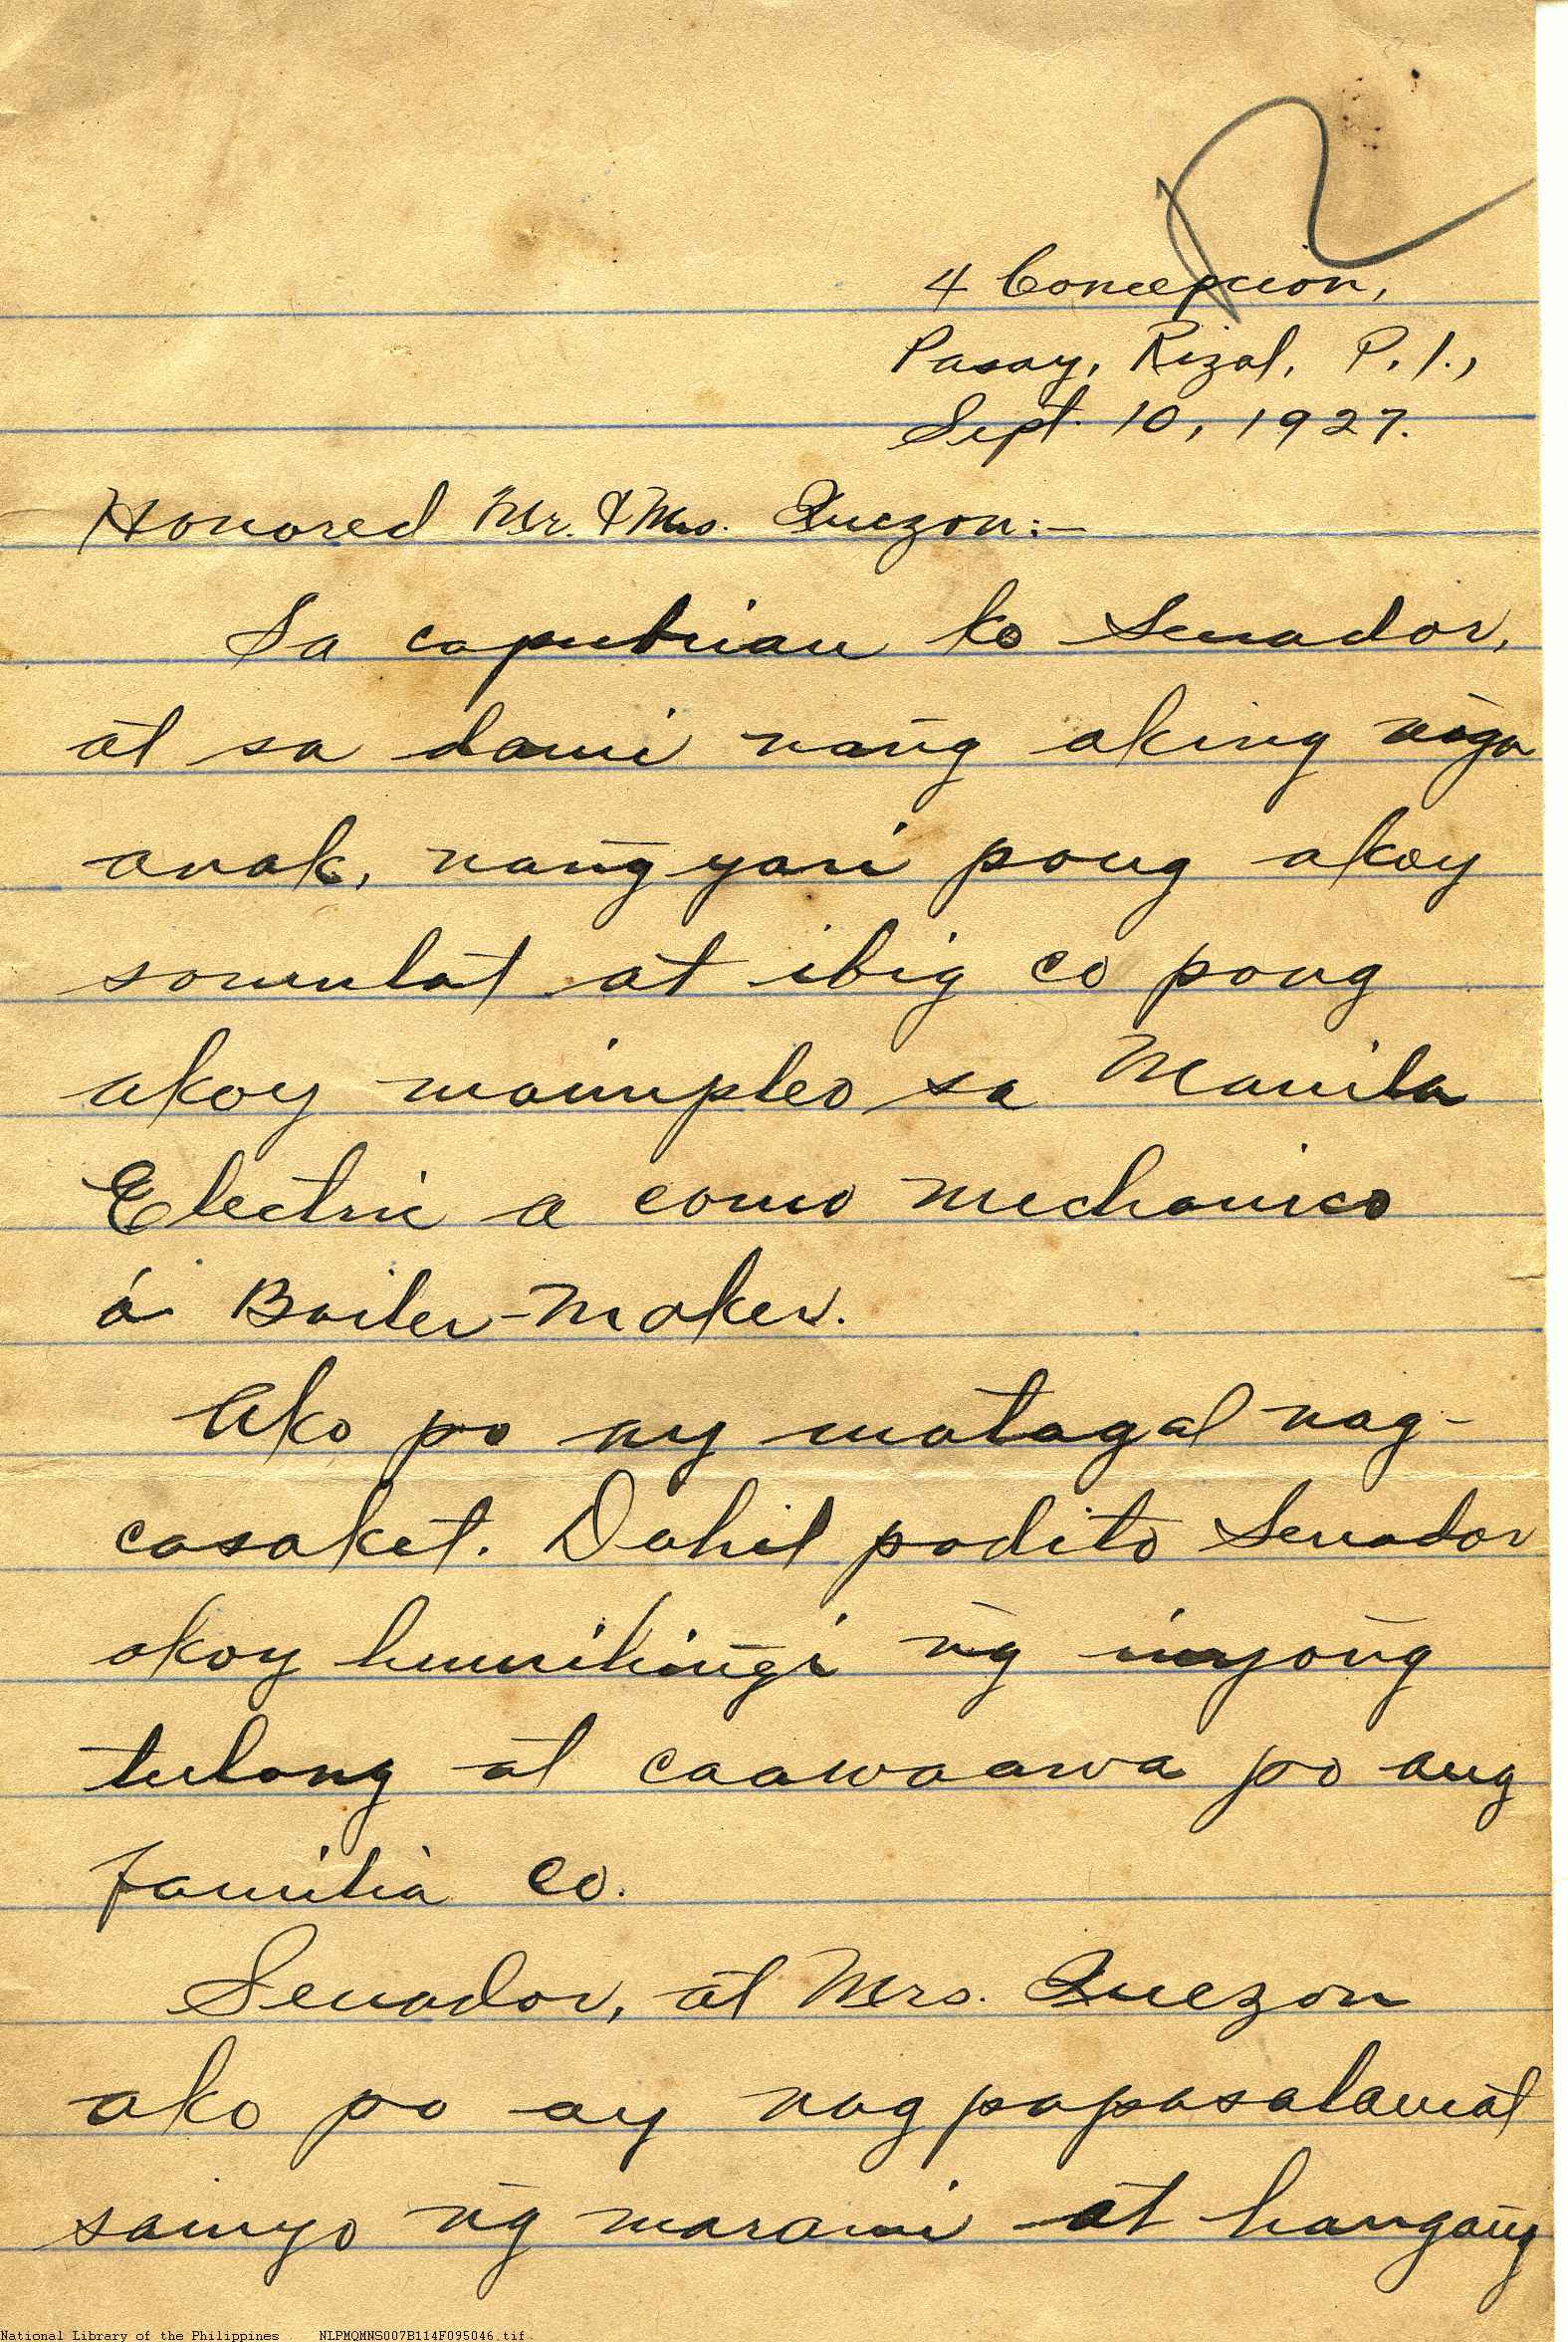 4 Concepcion,
Pasay, Rizal, P. I.,
Sept. 10, 1927.
Honored Mr. & Mrs. Quezon:-
Sa caputrian ko Senador,
at sa dami nang̃ aking ng̃a
anak, nang̃yari poug akoy
somulat at ibig co poug
akoy maimpleo sa Manila
Electric a como mechanico
ó Boiler-Maker.
Ako po ay matagal nag-
casaket. Dahil podito Senador
akoy humihing̃i ng̃ inyong̃
tulong at caawaawa po ang
familia co.
Senador, at Mrs. Quezon
ako po ay nagpapasalamat
sainyo ng̃ marami at hangang̃
National Library of the Philippines NLPMQMNS007B114F095046.tif